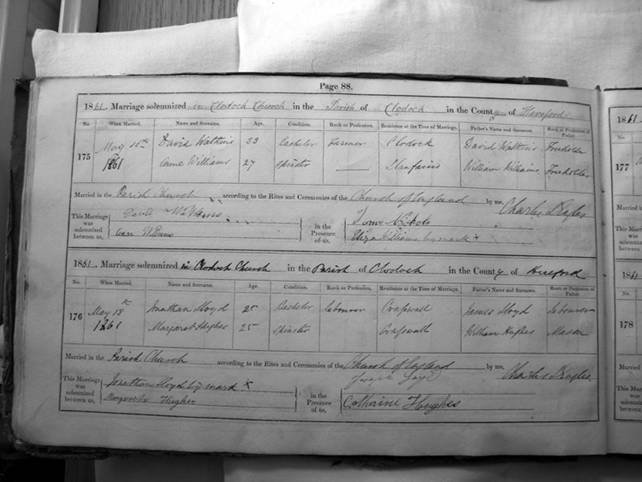 Page 88.
1861. Marriage solemnized in Clodock Church in the Parish of Clodock in the County of Hereford
No. When Married. Name and Surname. Age. Condition. Rank or Profession. Residence at the Time of Marriage. Father's Name and Surname. Rank or Profession of Father.
175 May 1861 David Watkins 33 Bachelor Farmer Clodock David Watkins Freeholder
Anne Williams 27 Spinster — William Williams Freeholder
Married in the Parish Church according to the Rites and Ceremonies of the Church of England by me,
Charles
This Marriage was solemnized between us, David Watkins
in the Presence of us, Eliza Williams by mark x
1861. Marriage solemnized in Clodock Church in the Parish of Clodock in the County of Hereford
No. When Married. Name and Surname. Age. Condition. Rank or Profession. Residence at the Time of Marriage. Father's Name and Surname. Rank or Profession of Father.
176 May 18th 1861 Jonathan Lloyd 25 Bachelor Labourer Craswall James Lloyd Labourer
Margaret Hughes 25 Spinster Craswall William Hughes Mason
Married in the Parish Church according to the Rites and Ceremonies of the Church of England by me,
Charles
This Marriage was solemnized between us, Jonathan Lloyd by mark x
Margaret Hughes
in the Presence of us, Catherine Hughes
1861
No.
177
178